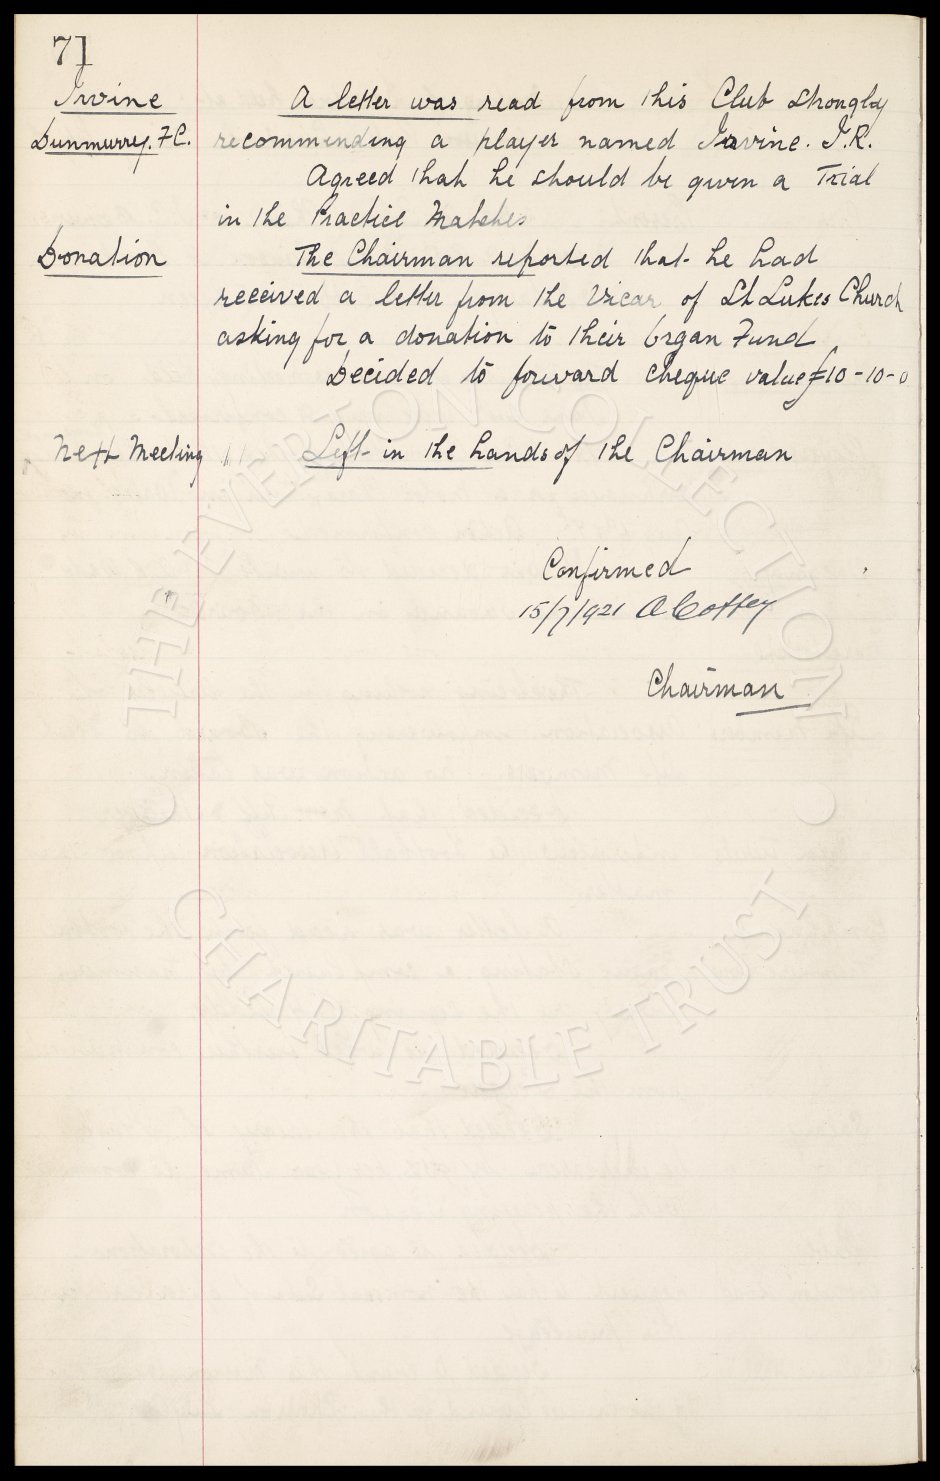 71
Irvine
Dunmurrey. F C.
A letter was read from this Club strongly
recommending a player named Irvine. J.R.
Agreed that he should be given a Trial
in the Practice Matches
Donation
The Chairman reported that he had
received a letter from the Vicar of St Lukes Church
asking for a donation to their Organ Fund
Decided to forward cheque value £10-10-0
Next Meeting
Left in the hands of the Chairman
Confirmed
15/7/1921 A Coffey
Chairman
THE EVERTON COLLECTION
CHARITABLE TRUST